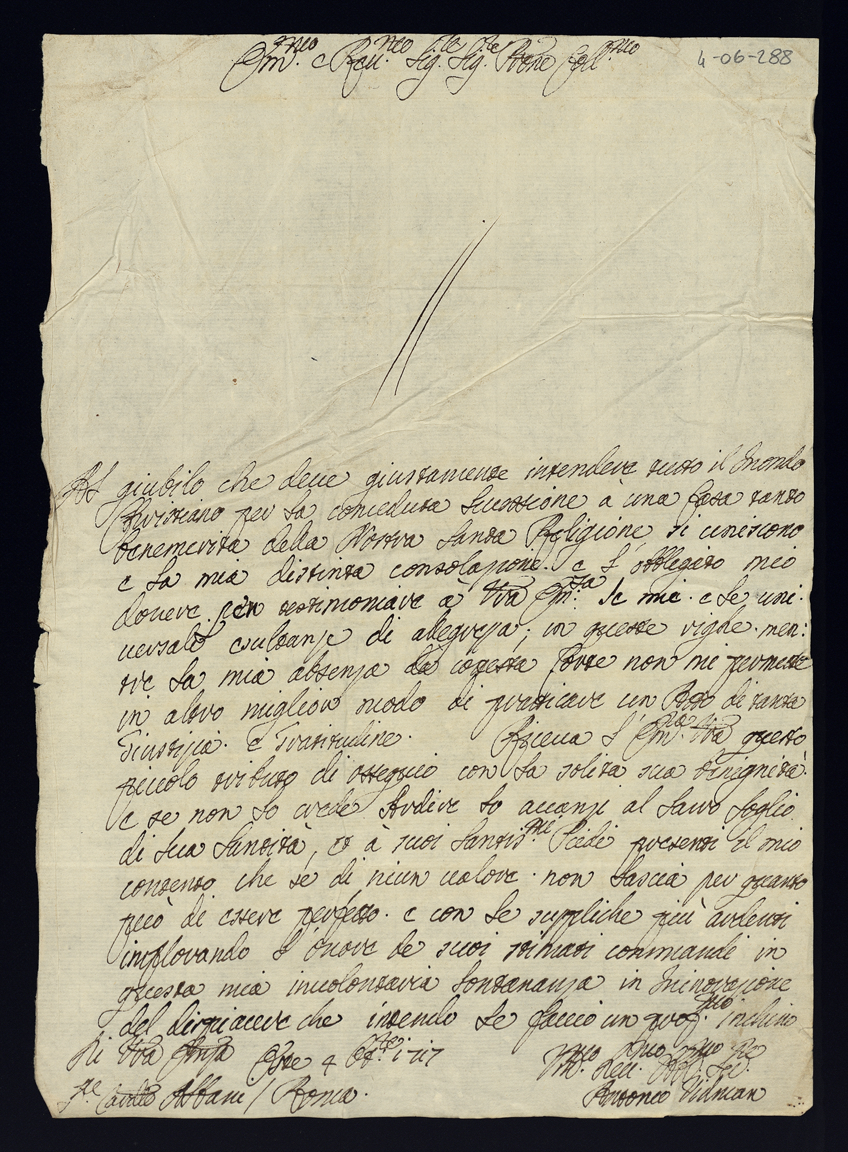 Em.mo e Rev.mo Sig.re Sig.re Prone Coll.mo
4-06-288
Al giubilo che deve giustamente intendere tutto il Mondo
Christiano per la conceduta Successione à una Casa tanto
benemerita della Nostra Santa Religione, si uniscono
e la mia distinta consolazione. e l'obbligato mio
dovere per testimoniare à Vra Em.za le mie. e le uni:
versali esultanze di allegrezza, in queste righe. men:
tre la mia absenza da cotesta Corte non mi permette
in altro miglior modo di praticare un Atto di tanta
Giustizia. e Gratitudine. Riceva l'Em.za Vra questo
piccolo tributo di ossequio con la solita sua benignità
e se non lo crede Ardire lo avanzi al Sacro Soglio
di Sua Santità, et à suoi Santis.mi Piedi presenti il mio
contento che se di niun valore. non lascia per quanto
può di essere perfetto. e con le suppliche più ardenti
implorando l'onore de suoi stimati commandi in
questa mia involontaria lontananza in minorazione
del dispiacere che intendo le faccio un prof.mo Inchino
Di Vra Emza Este 4 1717
Um.mo Dev.mo Obb.mo Se.re
Sr. Albani / Roma.
Antonio Vidman